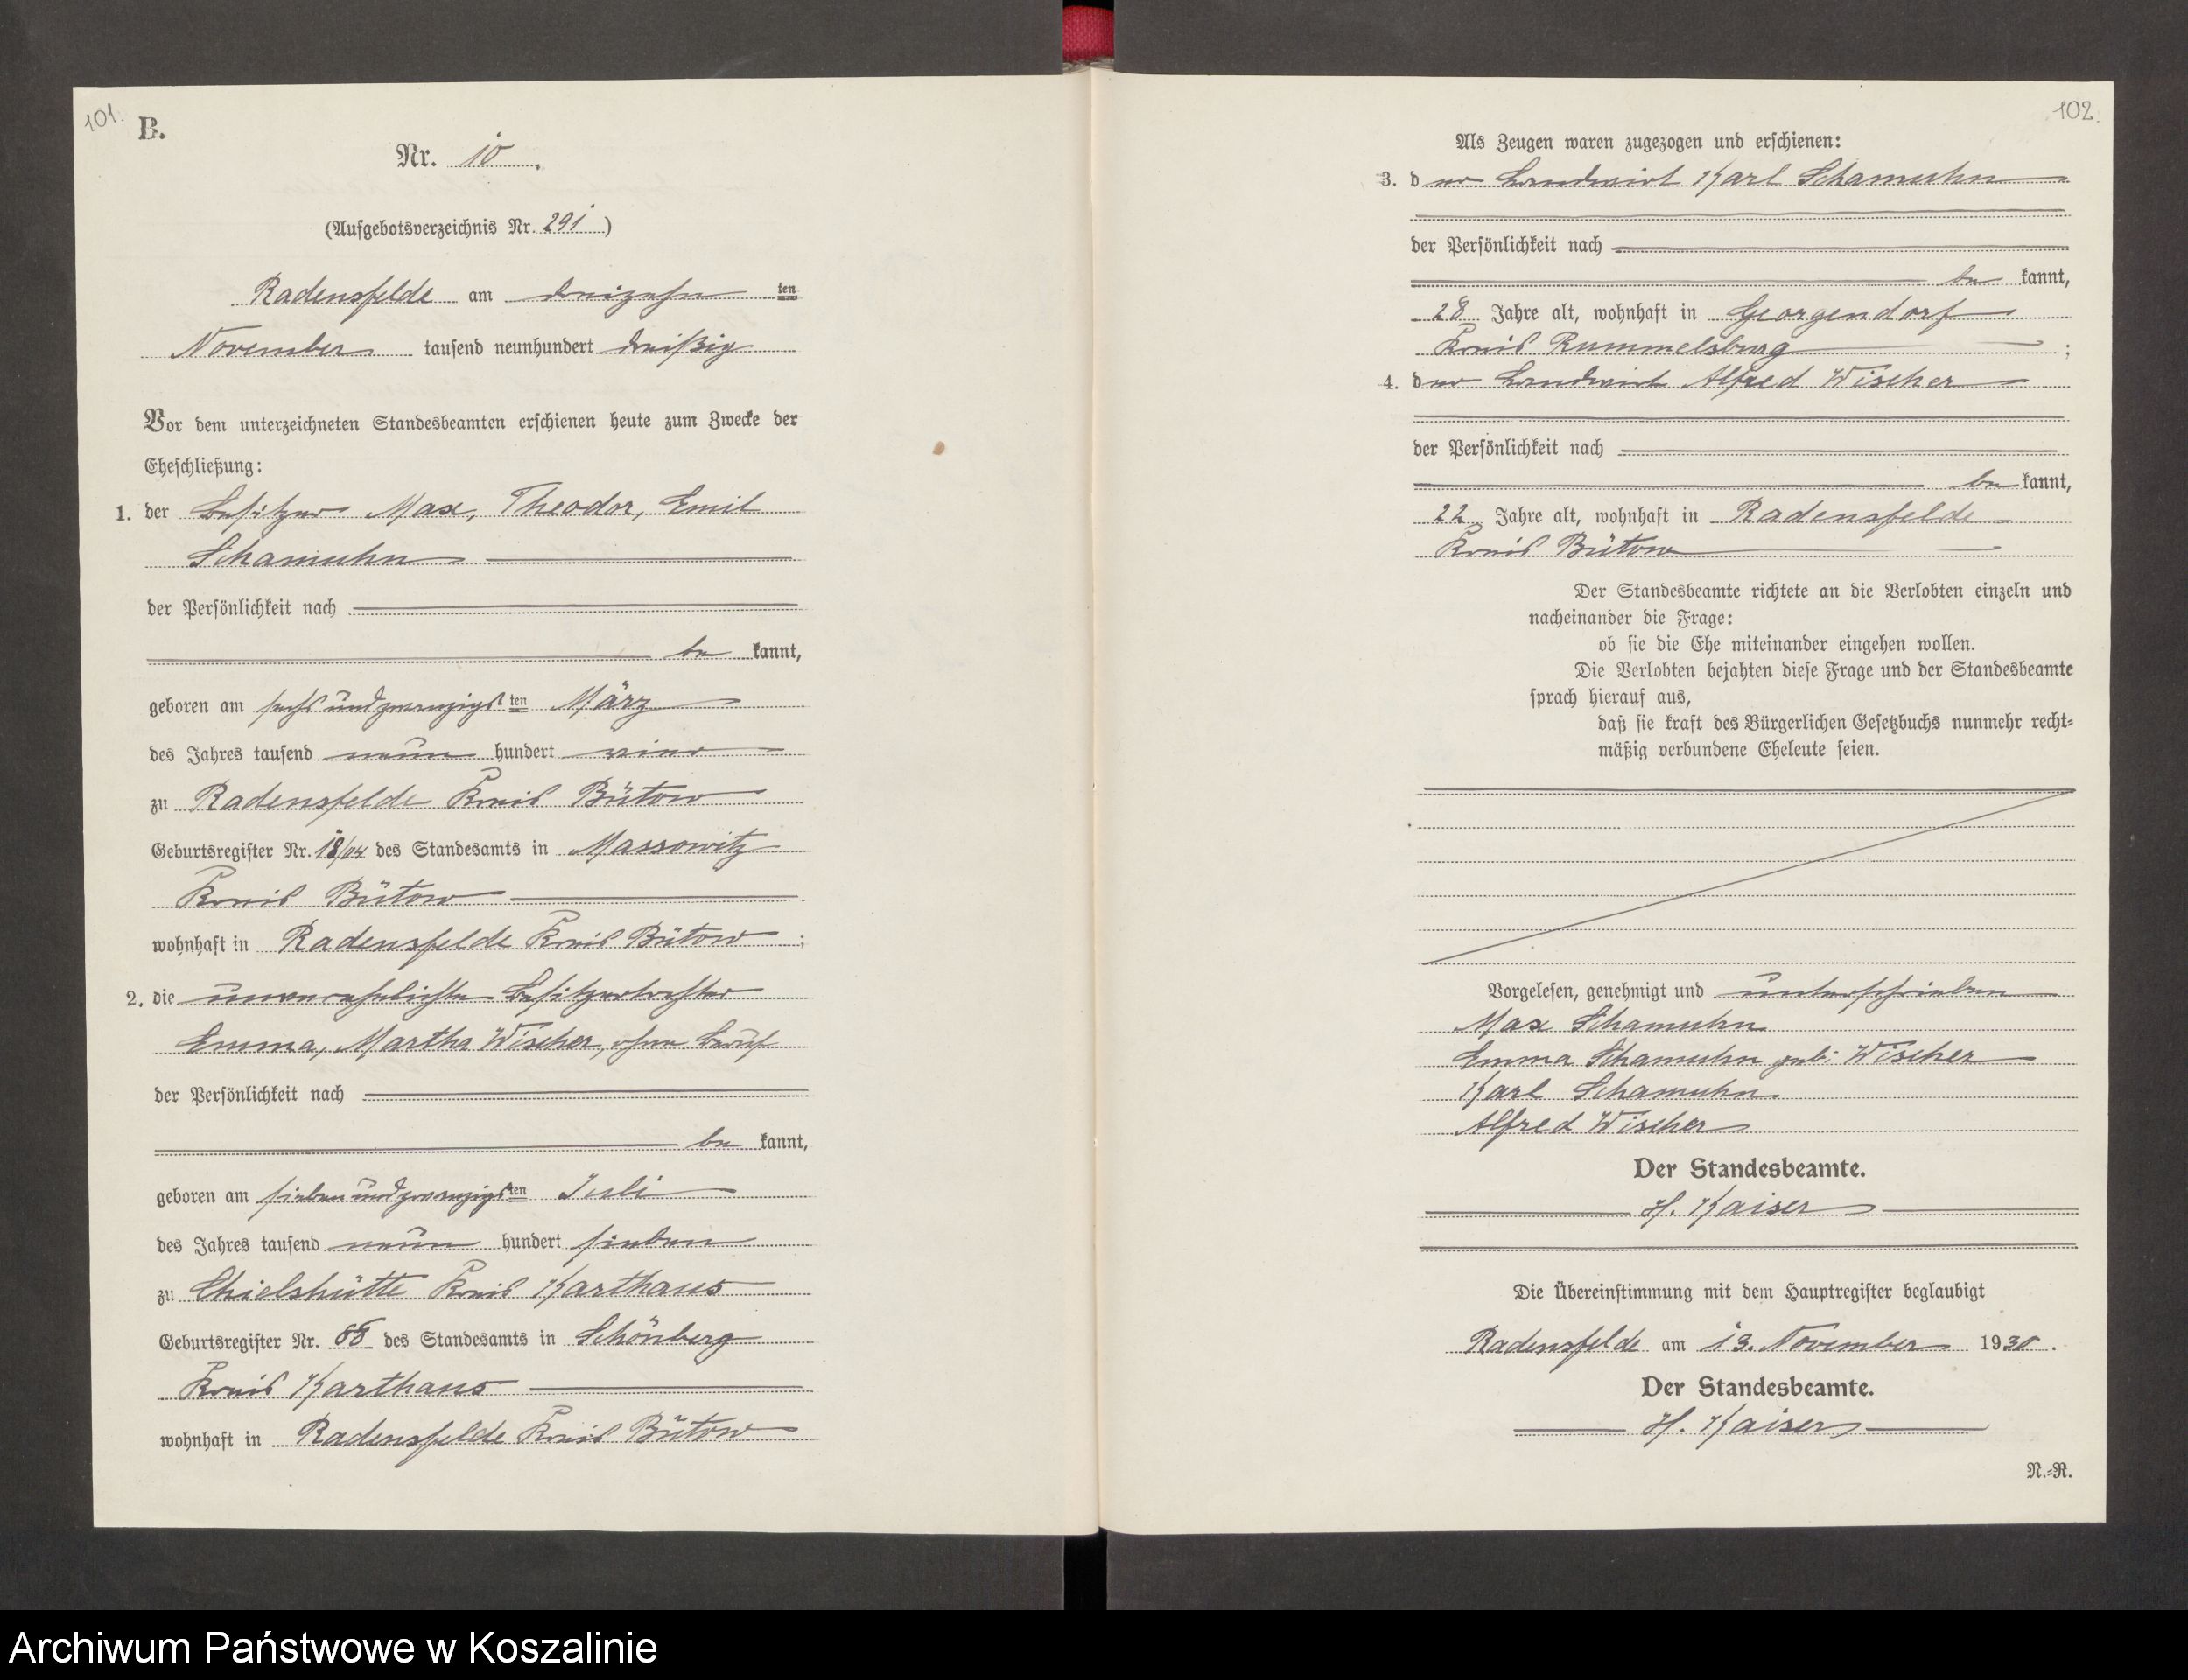 101.
B.
Nr. 10.
(Aufgebotsverzeichnis Nr. 291)
Radensfelde am dreizehn ten
November tausend neunhundert dreißig
Vor dem unterzeichneten Standesbeamten erschienen heute zum Zwecke der
Eheschließung:
1. der Besitzer Max, Theodor, Emil
Schamuhn
der Persönlichkeit nach
be kannt,
geboren am sechsundzwanzigsten März
des Jahres tausend neun hundert vier
zu Radensfelde Kreis Bütow
Geburtsregister Nr. 18/04 des Standesamts in Massowitz
Kreis Bütow
wohnhaft in Radensfelde Kreis Bütow;
2. die unverehelichte Besitzertochter
Emma, Martha Wischer, ohne Beruf
der Persönlichkeit nach
be kannt,
geboren am siebenundzwanzigsten Juli
des Jahres tausend neun hundert sieben
zu Kreis Karthaus
Geburtsregister Nr. des Standesamts in Schönberg
Kreis Karthaus
wohnhaft in Radensfelde Kreis Bütow
102.
Als Zeugen waren zugezogen und erschienen:
3. der Landwirt Karl Schamuhn
der Persönlichkeit nach
be kannt,
28 Jahre alt, wohnhaft in Georgendorf
Kreis Rummelsburg;
4. der Landwirt Alfred Wischer
der Persönlichkeit nach
be kannt,
22 Jahre alt, wohnhaft in Radensfelde
Kreis Bütow
Der Standesbeamte richtete an die Verlobten einzeln und
nacheinander die Frage:
ob sie die Ehe miteinander eingehen wollen.
Die Verlobten bejahten diese Frage und der Standesbeamte
sprach hierauf aus,
daß sie kraft des Bürgerlichen Gesetzbuchs nunmehr recht-
mäßig verbundene Eheleute seien.
Vorgelesen, genehmigt und unterschrieben
Max Schamuhn
Emma Schamuhn geb: Wischer
Karl Schamuhn
Alfred Wischer
Der Standesbeamte.
H. Kaiser
Die Übereinstimmung mit dem Hauptregister beglaubigt
Radensfelde am 13. November 1930.
Der Standesbeamte.
H. Kaiser
N.-R.
Archiwum Państwowe w Koszalinie